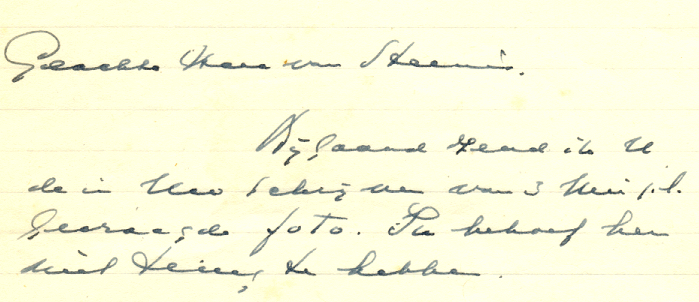 Geachte Heer van Steenis.
Bijgaand zend ik U
de in Uw schrijven van 3 Mei j.l.
gevraagde foto. Ik behoef hem
niet terug te hebben.